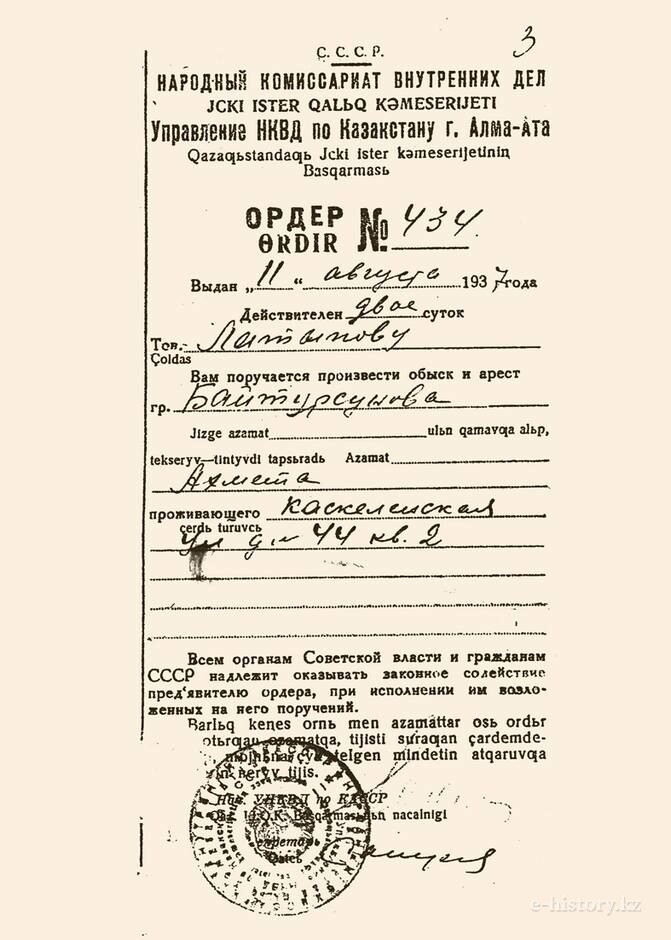 3
С. С. С. Р.
НАРОДНЫЙ КОМИССАРИАТ ВНУТРЕННИХ ДЕЛ
JCKI ISTER QALЬQ KƏMESERIJETI
Управление НКВД по Казакстану г. Алма-Ата
Qazaqьstandaqь Jcki ister kəmeserijetiniꞑ
Basqarmasь
ОРДЕР
ӨRDIR № 434.
Выдан „11“ августа 1937 года
Действителен двое суток
Тов. Латыпову
Çoldas
Вам поручается произвести обыск и арест
гр. Байтурсунова
Jizge azamat ulьn qamavqa alьp,
tekseryv—tintyvdi tapsьradь Azamat
Ахмета
проживающего Каскеленская
çerdь turuvcь
ул д м 44 кв. 2
Всем органам Советской власти и гражданам
СССР надлежит оказывать законное содействие
пред‘явителю ордера, при исполнении им возло-
женных на него поручений.
Barlьq kenes ornь men azamattar osь ordьr
otьrqan azamatqa, tijisti suraqan çardemde-
telgen mindetin atqaruvqa
tijis.
Нач. УНКВД по КАССР
Basqarmasьnьn nacalnigi
e-history.kz